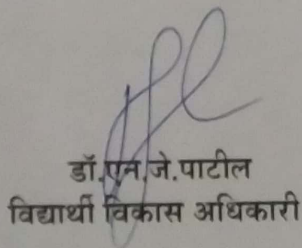 डॉ.एन.जे.पाटील
विद्यार्थी विकास अधिकारी